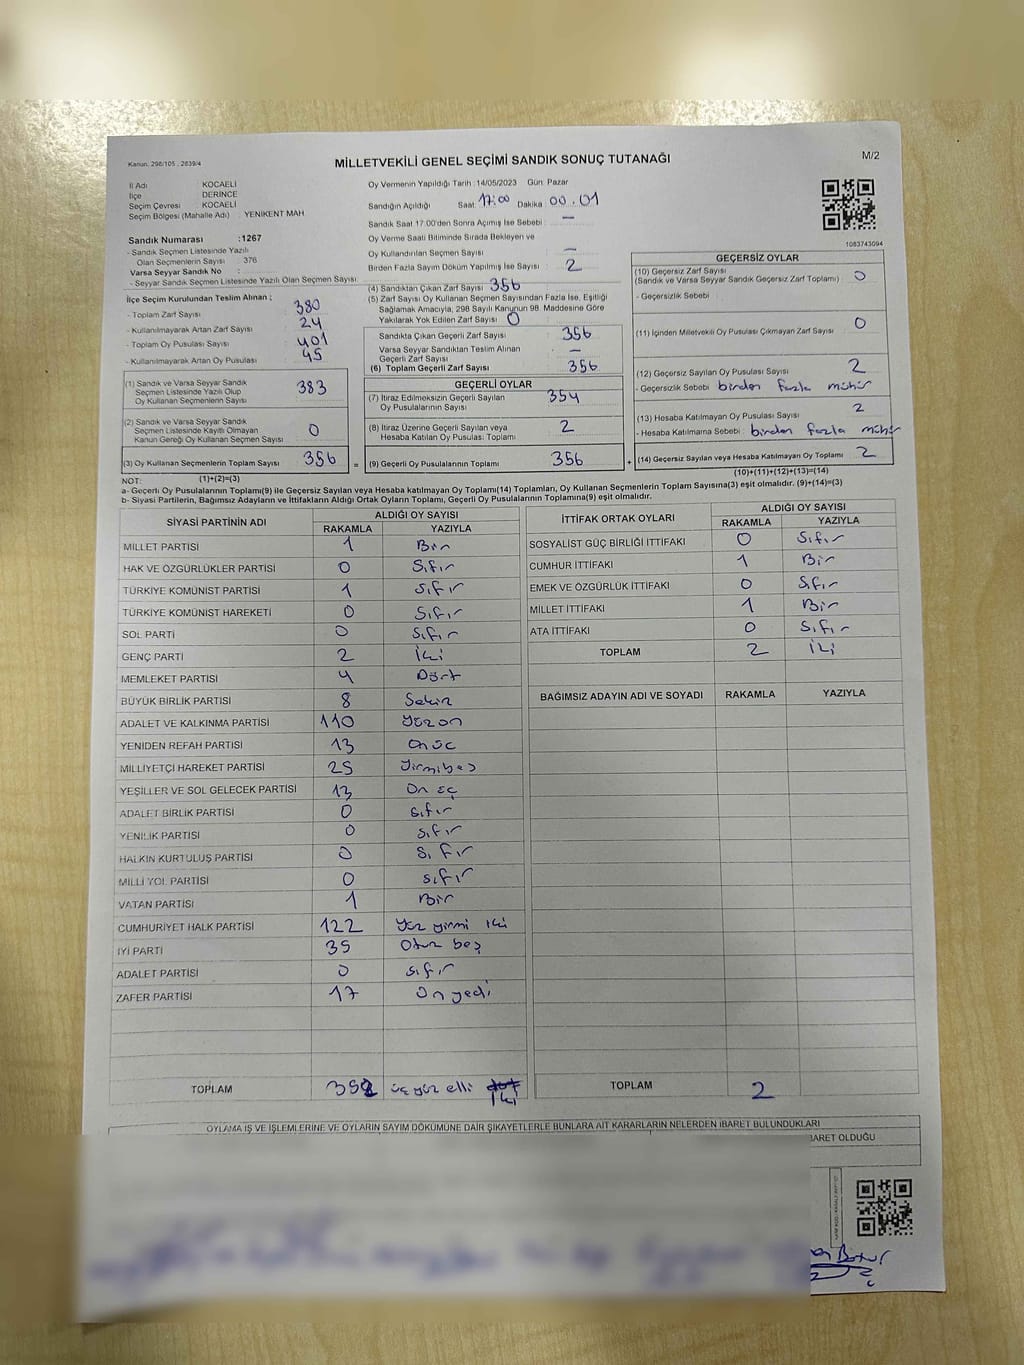 Kanun: 298/105 , 2839/4
MİLLETVEKİLİ GENEL SEÇİMİ SANDIK SONUÇ TUTANAĞI
M/2
İl Adı : KOCAELİ
İlçe : DERİNCE
Seçim Çevresi : KOCAELİ
Seçim Bölgesi (Mahalle Adı) : YENİKENT MAH
Sandık Numarası :1267
- Sandık Seçmen Listesinde Yazılı
Olan Seçmenlerin Sayısı : 376
Varsa Seyyar Sandık No :
- Seyyar Sandık Seçmen Listesinde Yazılı Olan Seçmen Sayısı:
Oy Vermenin Yapıldığı Tarih :14/05/2023 Gün: Pazar
Sandığın Açıldığı Saat: 17:00 Dakika: 00.01
Sandık Saat 17:00'den Sonra Açılmış İse Sebebi : –
Oy Verme Saati Bitiminde Sırada Bekleyen ve
Oy Kullandırılan Seçmen Sayısı : –
Birden Fazla Sayım Döküm Yapılmış İse Sayısı : 2
1083743094
İlçe Seçim Kurulundan Teslim Alınan :
- Toplam Zarf Sayısı : 380
- Kullanılmayarak Artan Zarf Sayısı : 24
- Toplam Oy Pusulası Sayısı : 401
- Kullanılmayarak Artan Oy Pusulası : 45
(1) Sandık ve Varsa Seyyar Sandık
Seçmen Listesinde Yazılı Olup
Oy Kullanan Seçmenlerin Sayısı : 383
(2) Sandık ve Varsa Seyyar Sandık
Seçmen Listesinde Kayıtlı Olmayan
Kanun Gereği Oy Kullanan Seçmen Sayısı : 0
(3) Oy Kullanan Seçmenlerin Toplam Sayısı : 356
(1)+(2)=(3)
(4) Sandıktan Çıkan Zarf Sayısı : 356
(5) Zarf Sayısı Oy Kullanan Seçmen Sayısından Fazla İse, Eşitliği
Sağlamak Amacıyla, 298 Sayılı Kanunun 98. Maddesine Göre
Yakılarak Yok Edilen Zarf Sayısı : 0
Sandıkta Çıkan Geçerli Zarf Sayısı : 356
Varsa Seyyar Sandıktan Teslim Alınan
Geçerli Zarf Sayısı : –
(6) Toplam Geçerli Zarf Sayısı : 356
GEÇERLİ OYLAR
(7) İtiraz Edilmeksizin Geçerli Sayılan
Oy Pusulalarının Sayısı : 354
(8) İtiraz Üzerine Geçerli Sayılan veya
Hesaba Katılan Oy Pusulası Toplamı : 2
= (9) Geçerli Oy Pusulalarının Toplamı : 356 +
GEÇERSİZ OYLAR
(10) Geçersiz Zarf Sayısı
(Sandık ve Varsa Seyyar Sandık Geçersiz Zarf Toplamı) : 0
- Geçersizlik Sebebi :
(11) İçinden Milletvekili Oy Pusulası Çıkmayan Zarf Sayısı : 0
(12) Geçersiz Sayılan Oy Pusulası Sayısı : 2
- Geçersizlik Sebebi : birden fazla mühür
(13) Hesaba Katılmayan Oy Pusulası Sayısı : 2
- Hesaba Katılmama Sebebi : birden fazla mühür
(14) Geçersiz Sayılan veya Hesaba Katılmayan Oy Toplamı : 2
(10)+(11)+(12)+(13)=(14)
NOT:
a- Geçerli Oy Pusulalarının Toplamı(9) ile Geçersiz Sayılan veya Hesaba katılmayan Oy Toplamı(14) Toplamları, Oy Kullanan Seçmenlerin Toplam Sayısına(3) eşit olmalıdır. (9)+(14)=(3)
b- Siyasi Partilerin, Bağımsız Adayların ve İttifakların Aldığı Oy Ortak Oyların Toplamı, Geçerli Oy Pusulalarının Toplamına(9) eşit olmalıdır.
SİYASİ PARTİNİN ADI ALDIĞI OY SAYISI
RAKAMLA YAZIYLA
MİLLET PARTİSİ 1 Bir
HAK VE ÖZGÜRLÜKLER PARTİSİ 0 Sıfır
TÜRKİYE KOMÜNİST PARTİSİ 1 Sıfır
TÜRKİYE KOMÜNİST HAREKETİ 0 Sıfır
SOL PARTİ 0 Sıfır
GENÇ PARTİ 2 İki
MEMLEKET PARTİSİ 4 Dört
BÜYÜK BİRLİK PARTİSİ 8 Sekiz
ADALET VE KALKINMA PARTİSİ 110 Yüzon
YENİDEN REFAH PARTİSİ 13 Onüç
MİLLİYETÇİ HAREKET PARTİSİ 25 Yirmibeş
YEŞİLLER VE SOL GELECEK PARTİSİ 13 On üç
ADALET BİRLİK PARTİSİ 0 Sıfır
YENİLİK PARTİSİ 0 Sıfır
HALKIN KURTULUŞ PARTİSİ 0 Sıfır
MİLLİ YOL PARTİSİ 0 Sıfır
VATAN PARTİSİ 1 Bir
CUMHURİYET HALK PARTİSİ 122 Yüz yirmi iki
İYİ PARTİ 35 Otuz beş
ADALET PARTİSİ 0 Sıfır
ZAFER PARTİSİ 17 On yedi
TOPLAM 352 üç yüz elli iki
İTTİFAK ORTAK OYLARI ALDIĞI OY SAYISI
RAKAMLA YAZIYLA
SOSYALİST GÜÇ BİRLİĞİ İTTİFAKI 0 Sıfır
CUMHUR İTTİFAKI 1 Bir
EMEK VE ÖZGÜRLÜK İTTİFAKI 0 Sıfır
MİLLET İTTİFAKI 1 Bir
ATA İTTİFAKI 0 Sıfır
TOPLAM 2 İki
BAĞIMSIZ ADAYIN ADI VE SOYADI RAKAMLA YAZIYLA
TOPLAM 2
OYLAMA İŞ VE İŞLEMLERİNE VE OYLARIN SAYIM DÖKÜMÜNE DAİR ŞİKAYETLERLE BUNLARA AİT KARARLARIN NELERDEN İBARET BULUNDUKLARI
BARET OLDUĞU